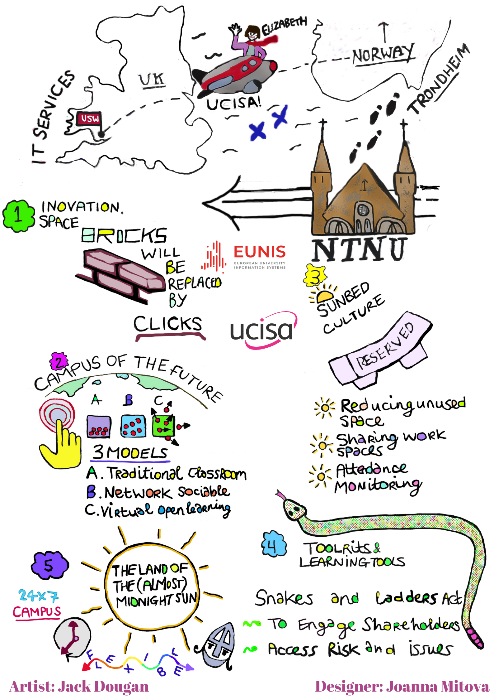 ELIZABETH
UK
NORWAY
TRONDHEIM
IT SERVICES
USW
UCISA!
NTNU
1 INOVATION.
SPACE
BRICKS
WILL
BE
REPLACED
BY
CLICKS
EUNIS
EUROPEAN UNIVERSITY
INFORMATION SYSTEMS
ucisa
3
SUNBED
CULTURE
RESERVED
Reducing unused
space
Sharing work
spaces
Attedance
Monitoring
2
CAMPUS OF THE FUTURE
A B C
3 MODELS
A. Traditional Classroom
B. Network Sociable
C. Virtual Open learning
4
TOOLKITS &
LEARNING TOOLS
Snakes and Ladders Act
To Engage Shareholders
Access Risk and issues
5
24x7
CAMPUS
THE LAND OF
THE (ALMOST)
MIDNIGHT SUN
FLEXIBLE
Artist: Jack Dougan
Designer: Joanna Mitova